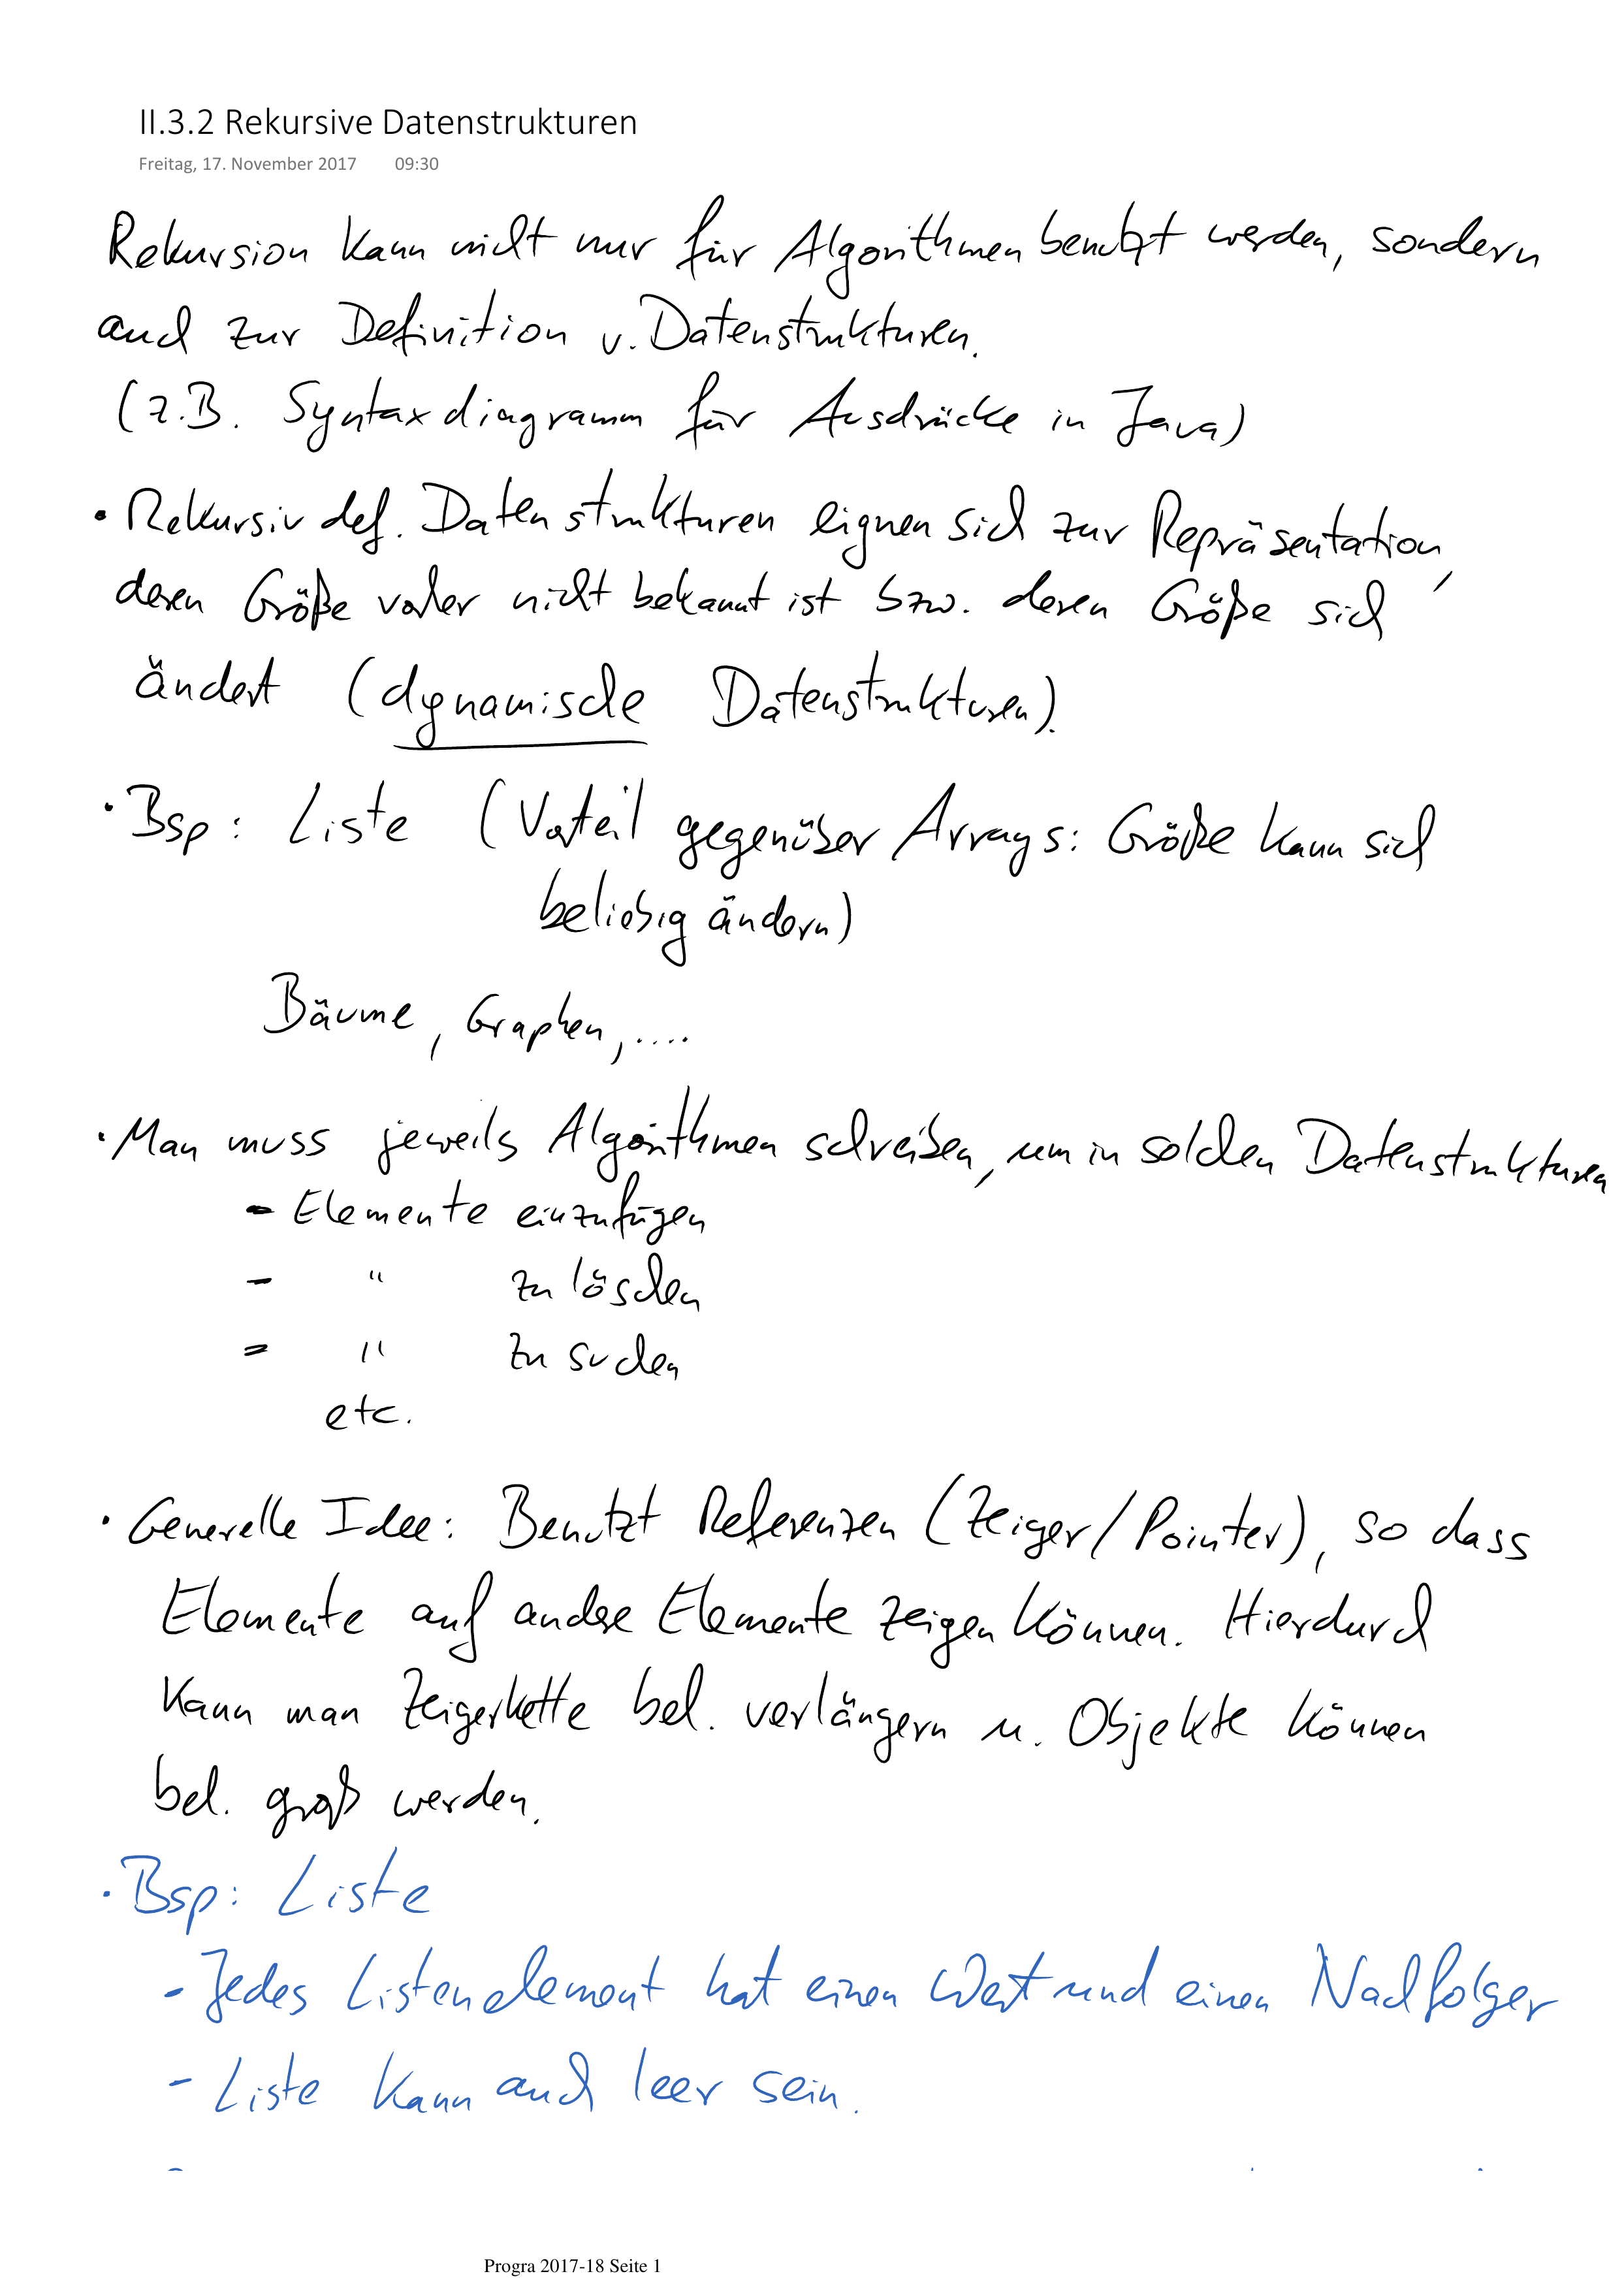 II.3.2 Rekursive Datenstrukturen
Freitag, 17. November 2017 09:30
Rekursion kann nicht nur für Algorithmen benutzt werden, sondern
auch zur Definition v. Datenstrukturen.
(z.B. Syntaxdiagramm für Ausdrücke in Java)
• Rekursiv def. Datenstrukturen eignen sich zur Repräsentation,
deren Größe vorher nicht bekannt ist bzw. deren Größe sich
ändert (dynamische Datenstrukturen).
• Bsp: Liste (Vorteil gegenüber Arrays: Größe kann sich
beliebig ändern)
Bäume, Graphen, ....
• Man muss jeweils Algorithmen schreiben, um in solchen Datenstrukturen
- Elemente einzufügen
- " zu löschen
- " zu suchen
etc.
• Generelle Idee: Benutzt Referenzen (Zeiger/Pointer), so dass
Elemente auf andere Elemente zeigen können. Hierdurch
kann man Zeigerkette bel. verlängern u. Objekte können
bel. groß werden.
• Bsp: Liste
- Jedes Listenelement hat einen Wert und einen Nachfolger
- Liste kann auch leer sein.
Progra 2017-18 Seite 1